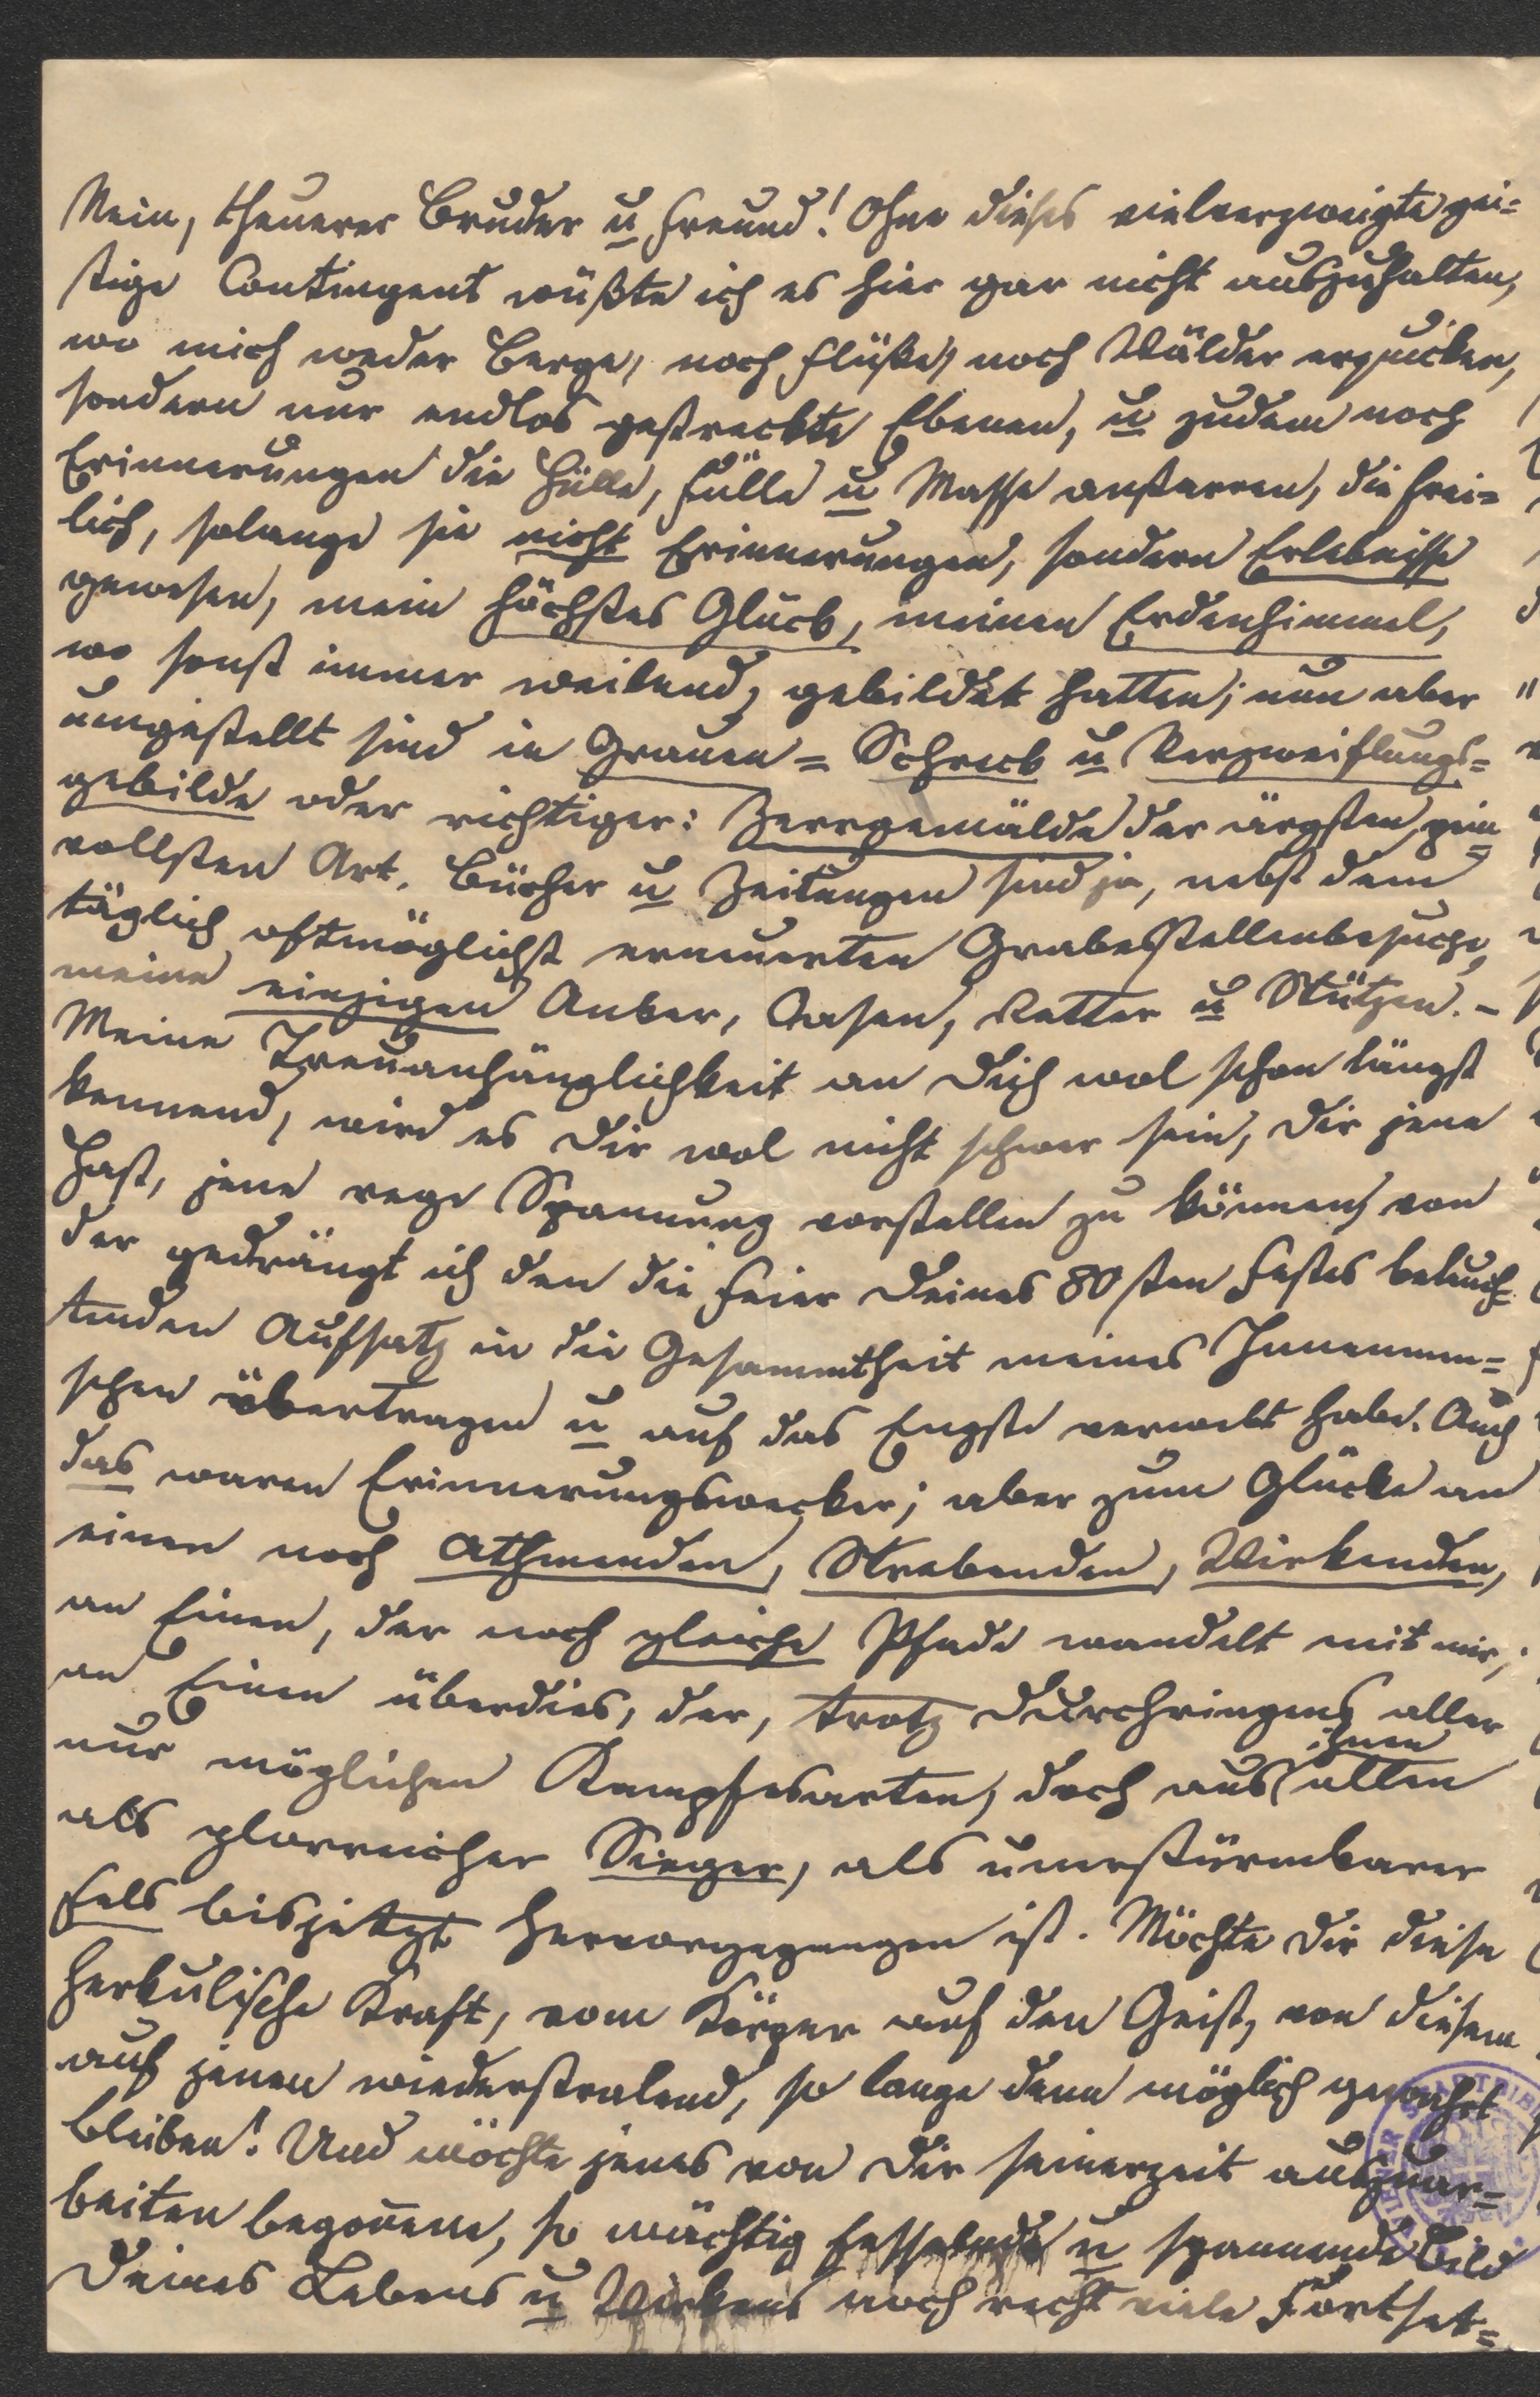 Mein, theurer Bruder u Freund! Ohne dieses vielverzweigte gei=
stige Contingent wüßte ich es hier gar nicht auszuhalten,
wo mich weder Berge, noch Flüße, noch Wälder erquicken,
sondern nur endlos gestreckte Ebenen, u zudem noch
Erinnerungen die Hülle, Fülle u Masse anstarren, die frei=
lich, solange sie nicht Erinnerungen, sondern Erlebnisse
gewesen, mein höchstes Glück, meinen Erdenhimmel,
wo sonst immer weilend, gebildet hatten; nun aber
umgestellt sind in Grauen= Schreck u Verzweiflungs=
gebilde oder richtiger: Zerrgemälde der ärgsten, pein
vollsten Art. Bücher u Zeitungen sind ja, nebst dem
täglich oftmöglichst erneuerten Grabesstellenbesuche,
meine einzigen Anker, Oasen, Retter u Stützen. –
Meine Treuanhänglichkeit an Dich wol schon längst
kennend, wird es Dir wol nicht schwer sein, Dir jene
Hast, jene rege Spannung vorstellen zu können, von
der gedrängt ich den die Feier Deines 80sten Festes beleuch=
tenden Aufsatz in die Gesammtheit meines Innenmen=
schen übertragen u auf das Engste verwebt habe. Auch
das waren Erinnerungswecker; aber zum Glücke an
einen noch Athmenden, Strebenden, Wirkenden,
an Einen, der noch gleiche Pfade wandelt mit mir;
an Einen überdies, der, trotz Durchringens aller
nur möglichen Kampfesarten, doch aus ihnen allen
als glorreicher Sieger, als unerstürmbarer
Fels bisjetzt hervorgegangen ist. Möchte Dir diese
herkulische Kraft, vom Körper auf den Geist, von diesem
auf jenen wiederstralend, so lange denn möglich gewahrt
bleiben! Und möchte jenes von Dir seinerzeit auszuar=
beiten begonnene, so mächtig fesselnde u spannende Bild
Deines Lebens u Wirkens noch recht viele Fortset=